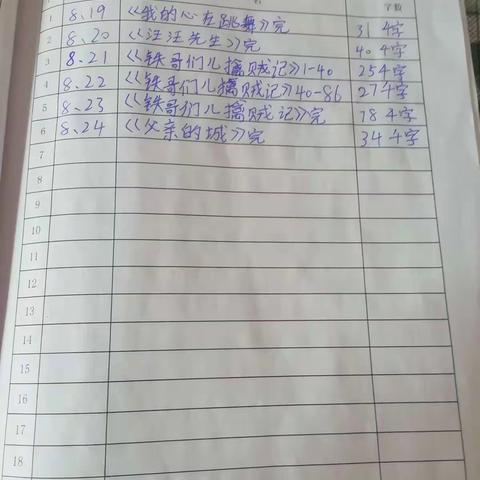 字数
1 8.19 《我的心在跳舞》完 31千字
2 8.20 《汪汪先生》完 40千字
3 8.21 《铁哥们儿擒贼记》1-40 25千字
4 8.22 《铁哥们儿擒贼记》40-86 27千字
5 8.23 《铁哥们儿擒贼记》完 18千字
6 8.24 《父亲的城》完 34千字
7
8
9
10
11
12
13
14
15
16
17
18